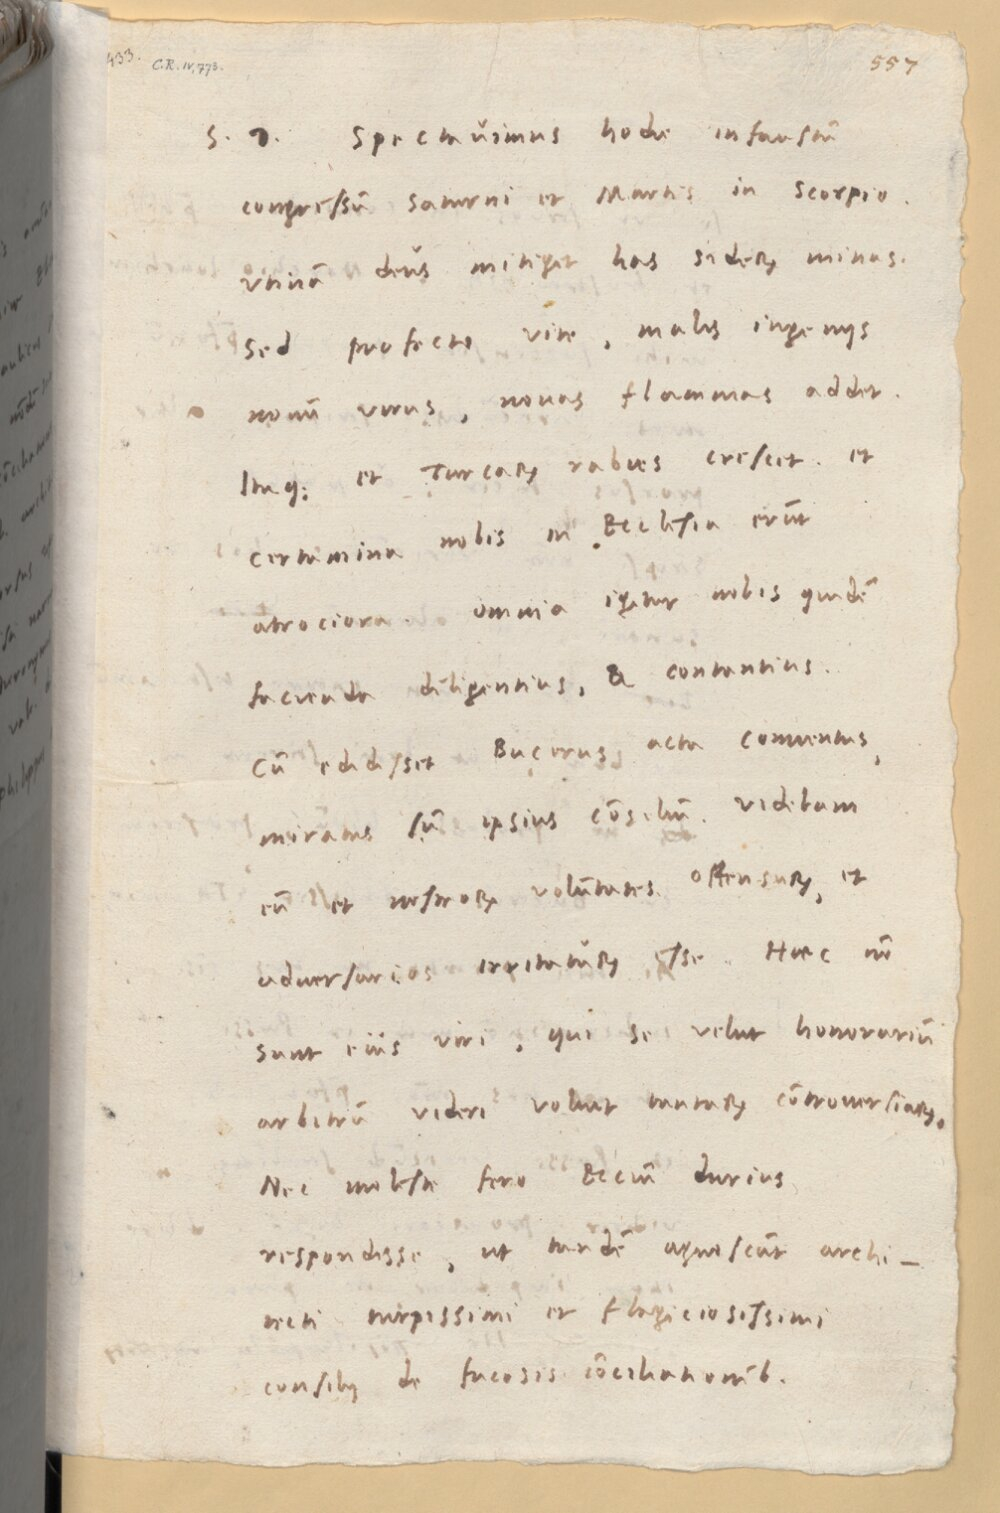 433. C.R. IV, 773.
557
S. D. Spectavimus hodie infaustũ
congressũ Saturni et Martis in Scorpio.
Vtinã deus mitiget has siderꝝ minas.
Sed profecto vite, malis ingenijs
nouũ virus, nouas flammas addet.
Itaq; et Turcarꝝ rabies crescet. et
certamina nobis in Ecclesia erũt
atrociora. omnia igitur nobis quidẽ
facienda diligentius, & contantius.
Cũ edidisset Bucerus acta conventus,
miratus sũ ipsius cõsiliũ. videbam
eũ et nostrorꝝ volũtates offensurꝝ, et
adversarios irritaturꝝ esse. Haec nõ
sunt eius viri, qui se velut honorariũ
arbitrũ videri voluit tantarꝝ cõtroversiarꝝ.
Nec moleste fero Ecciũ durius
respondisse, ut tandẽ agnoscãt archi-
tecti turpissimi et flagiciosissimi
consilij de fucosis cõciliationib.